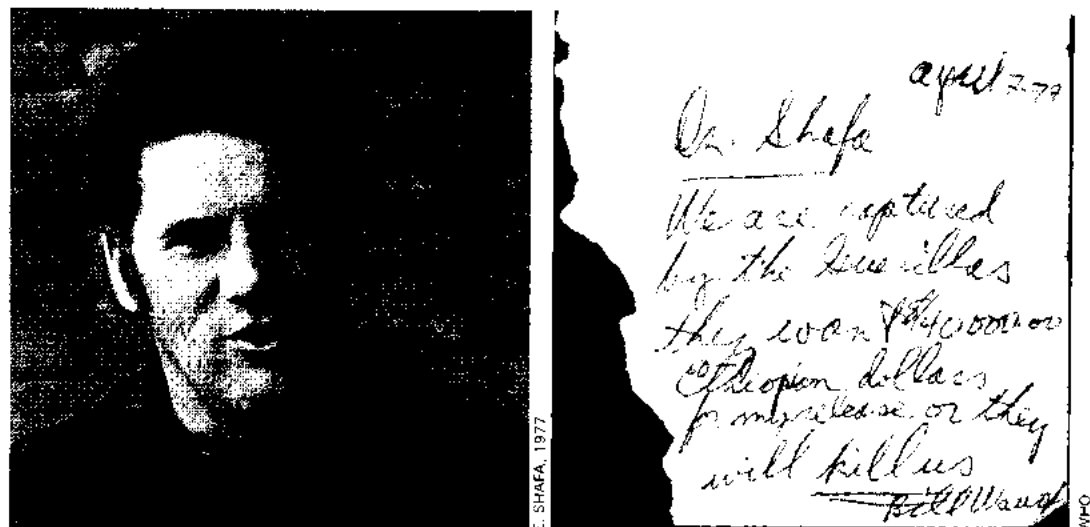 E. SHAFA, 1977
april 7-77
Dr. Shafa
We are captured
by the Guerillas
they wan
Ethiopian dollars
for my release or they
will kill us
Bill
WHO